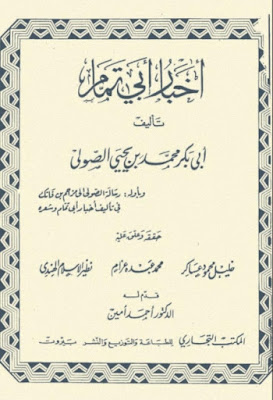 أخبار أبي تمام
تأليف
أبي بكر محمد بن يحيى الصولي
وبأوله: رسالة الصولي إلى مزاحم بن فاتك
في تأليف أخبار أبي تمام وشعره
حققه وعلق عليه
خليل محمود عساكر محمد عبده عزام نظير الإسلام الهندي
قدم له
الدكتور أحمد أمين
المكتب التجاري للطباعة والتوزيع والنشر بيروت